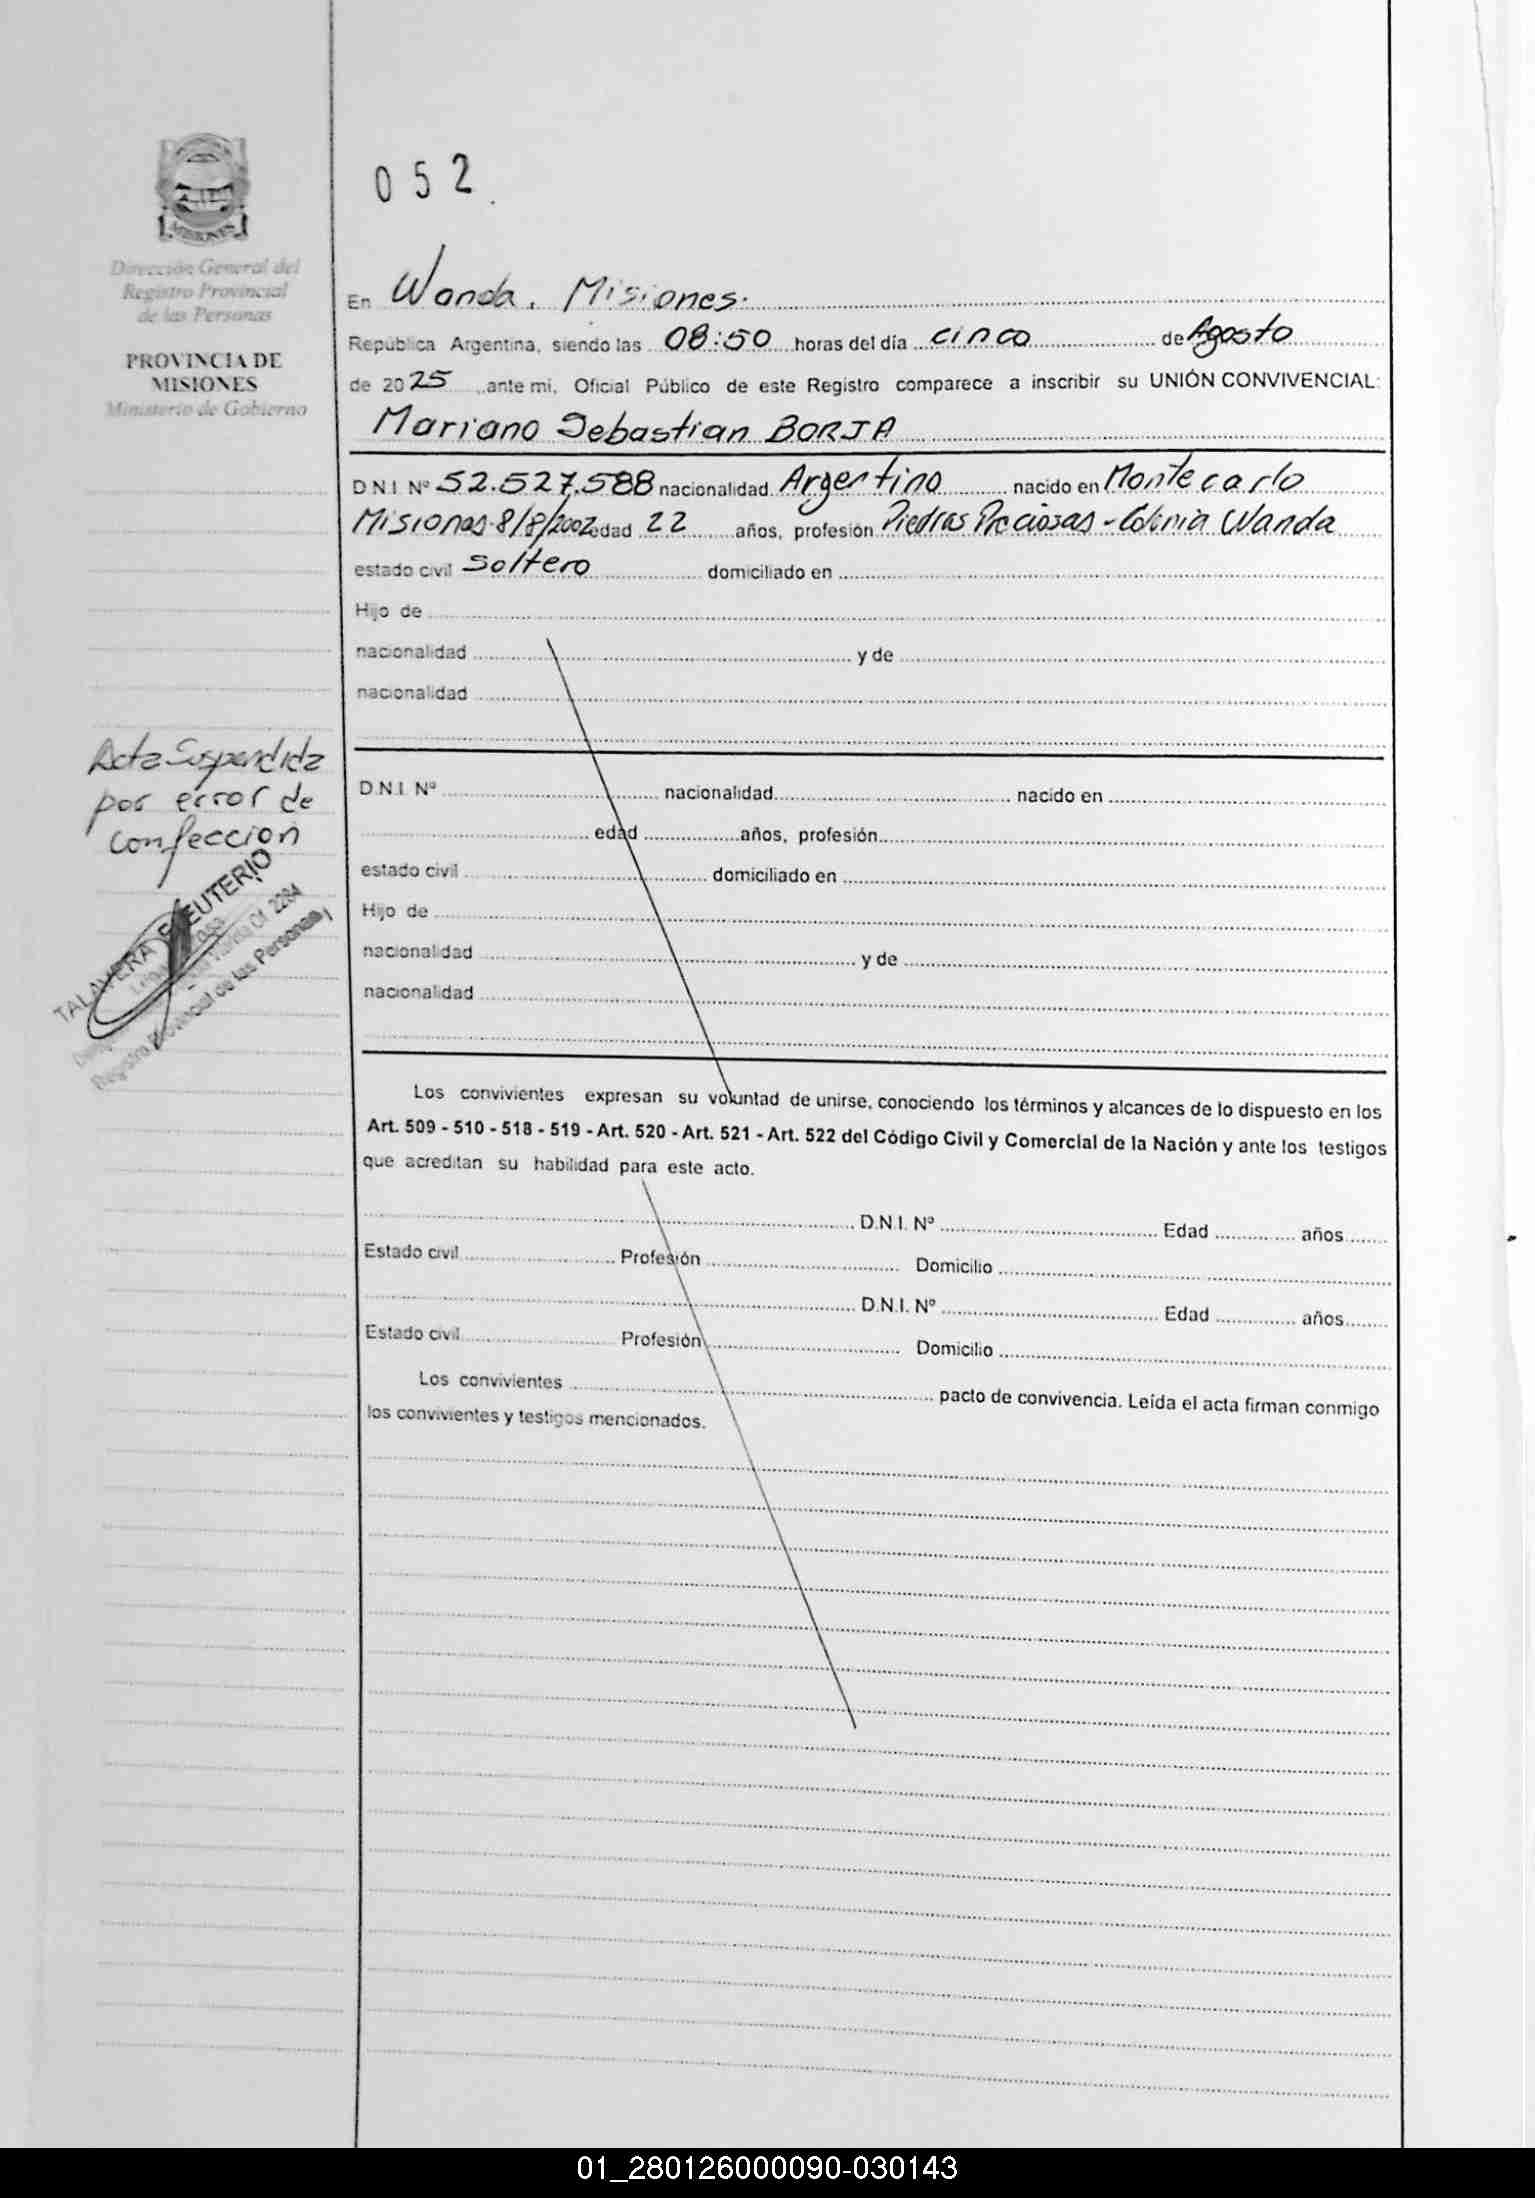 052
MISIONES
Dirección General del
Registro Provincial
de las Personas
PROVINCIA DE
MISIONES
Ministerio de Gobierno
En Wanda, Misiones
República Argentina, siendo las 08:50 horas del día cinco de Agosto
de 2025 ante mi, Oficial Público de este Registro comparece a inscribir su UNIÓN CONVIVENCIAL:
Mariano Sebastian BORJA
D.N.I. Nº 52.527.588 nacionalidad Argentino nacido en Montecarlo
Misiones 8/8/2002 edad 22 años, profesión Piedras Preciosas - Colonia Wanda
estado civil Soltero domiciliado en
Hijo de
nacionalidad y de
nacionalidad
Acta Suspendida
por error de
Confeccion
TALAVERA ELEUTERIO
2284
Registro Provincial de las Personas
D.N.I. Nº nacionalidad nacido en
edad años, profesión
estado civil domiciliado en
Hijo de
nacionalidad y de
nacionalidad
Los convivientes expresan su voluntad de unirse, conociendo los términos y alcances de lo dispuesto en los
Art. 509 - 510 - 518 - 519 - Art. 520 - Art. 521 - Art. 522 del Código Civil y Comercial de la Nación y ante los testigos
que acreditan su habilidad para este acto.
D.N.I. Nº Edad años
Estado civil Profesión Domicilio
D.N.I. Nº Edad años
Estado civil Profesión Domicilio
Los convivientes pacto de convivencia. Leída el acta firman conmigo
los convivientes y testigos mencionados.
01_280126000090-030143